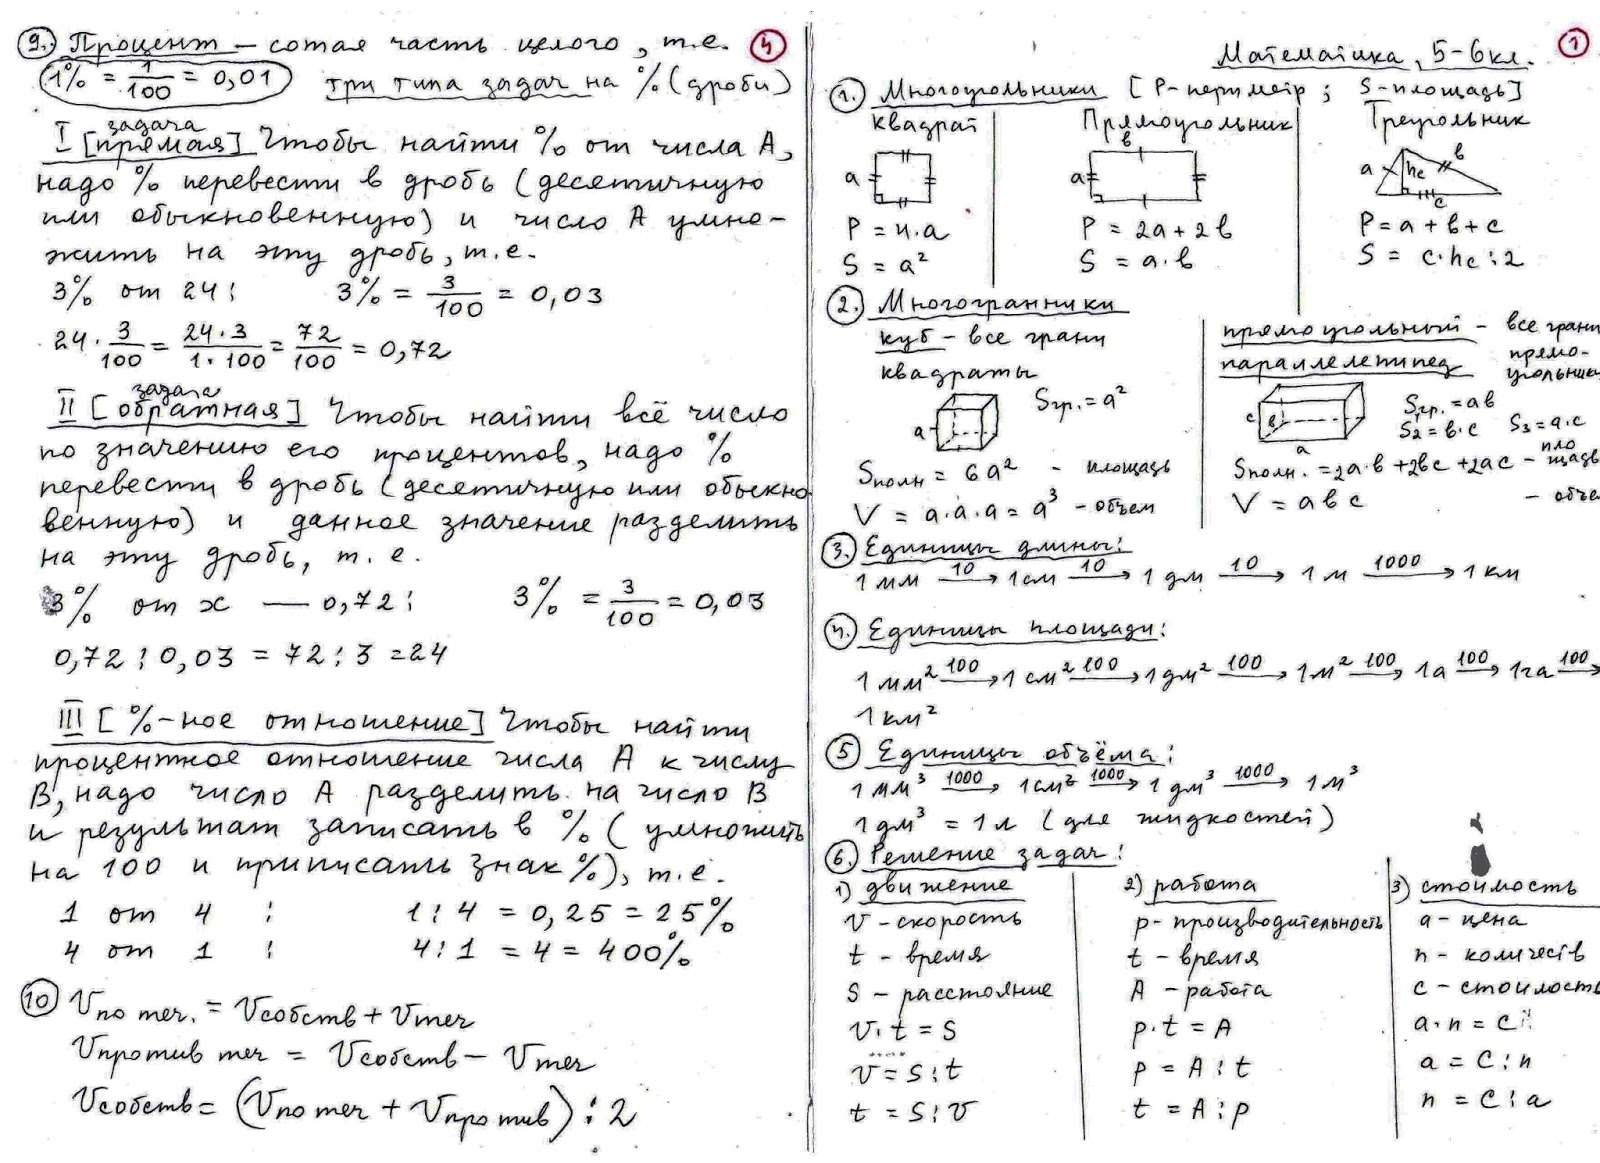 9. Процент – сотая часть целого, т.е. 4
1% = 1/100 = 0,01 три типа задач на % (дроби)
I [прямая] задача Чтобы найти % от числа А,
надо % перевести в дробь (десятичную
или обыкновенную) и число А умно-
жить на эту дробь, т.е.
3% от 24: 3% = 3/100 = 0,03
24 · 3/100 = 24·3/1·100 = 72/100 = 0,72
II [обратная] задача Чтобы найти всё число
по значению его процентов, надо %
перевести в дробь (десетичную или обыкно-
венную) и данное значение разделить
на эту дробь, т.е.
3% от x — 0,72: 3% = 3/100 = 0,03
0,72 : 0,03 = 72 : 3 = 24
III [%-ное отношение] Чтобы найти
процентное отношение числа А к числу
В, надо число А разделить на число В
и результат записать в % (умножить
на 100 и приписать знак %), т.е.
1 от 4 : 1 : 4 = 0,25 = 25%
4 от 1 : 4 : 1 = 4 = 400%
10 Vпо теч. = Vсобств + Vтеч
Vпротив теч = Vсобств – Vтеч
Vсобств = (Vпо теч + Vпротив) : 2
Математика, 5-6 кл. 1
1. Многоугольники [P-периметр; S-площадь]
квадрат
a
P = 4·a
S = a²
Прямоугольник
в
a
P = 2a + 2в
S = a·в
Треугольник
a hc в
c
P = a + в + c
S = c·hc : 2
2. Многогранники
куб – все грани
квадраты
a Sгр. = a²
Sполн = 6a² - площадь
V = a·a·a = a³ - объем
прямоугольный – все грани
параллелепипед прямо-
угольники
c в a
Sгр. = aв
S2 = в·c S3 = a·c
Sполн. = 2a·в + 2вc + 2ac – площадь
V = aвc – объе
3. Единицы длины:
1 мм —10→ 1 см —10→ 1 дм —10→ 1 м —1000→ 1 км
4. Единицы площади:
1 мм² —100→ 1 см² —100→ 1 дм² —100→ 1 м² —100→ 1а —100→ 1га —100→
1 км²
5 Единицы объёма:
1 мм³ —1000→ 1 см³ —1000→ 1 дм³ —1000→ 1 м³
1 дм³ = 1 л (для жидкостей)
6. Решение задач:
1) движение
V – скорость
t – время
S – расстояние
V·t = S
V = S : t
t = S : V
2) работа
p – производительность
t – время
A – работа
p·t = A
p = A : t
t = A : p
3) стоимость
a – цена
n – количеств
c – стоимость
a·n = C
a = C : n
n = C : a